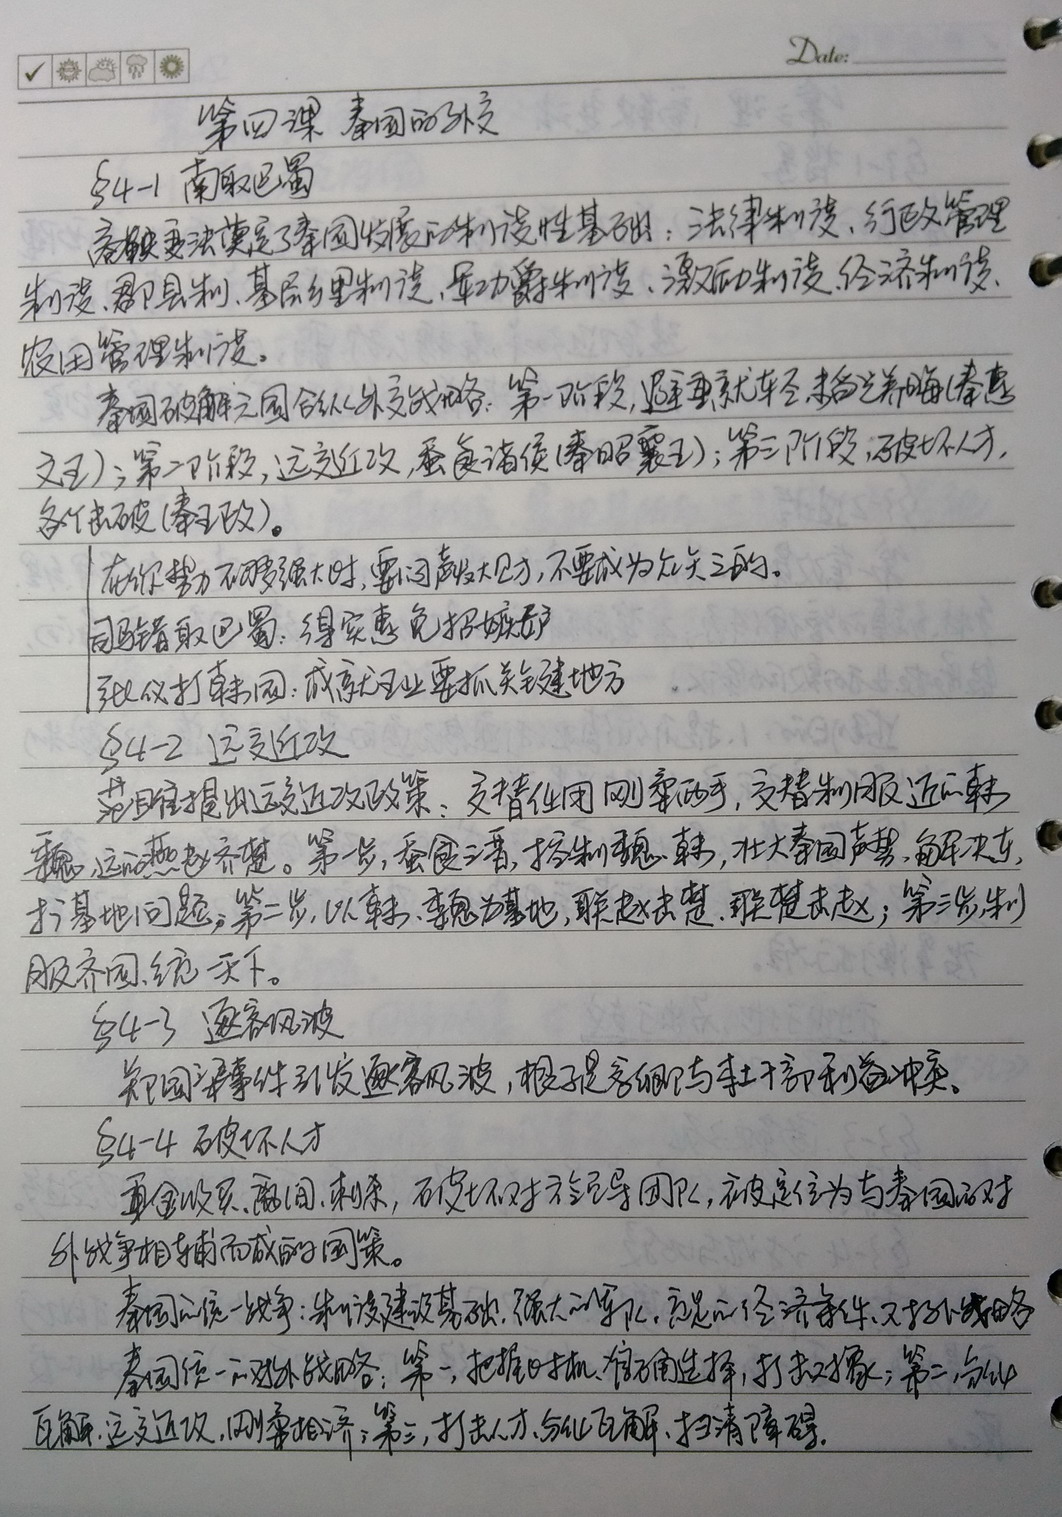 Date:
第四课 秦国的外交
§4-1 南取巴蜀
商鞅变法奠定了秦国发展的制度性基础：法律制度、行政管理
制度、郡县制、基层乡里制度、军功爵制度、激励制度、经济制度、
农田管理制度。
秦国破解六国合纵外交战略：第一阶段，避重就轻，韬光养晦（秦惠
文王）；第二阶段，远交近攻，蚕食诸侯（秦昭襄王）；第三阶段，破坏人才，
各个击破（秦王政）。
在你势力不够强大时，要闷声发大财，不要成为众矢之的。
司马错取巴蜀：得实惠免招嫉妒
张仪打韩国：成就王业要抓关键地方
§4-2 远交近攻
范雎提出远交近攻政策：交替使用刚柔两手，交替制服近的韩
魏、远的燕赵齐楚。第一步，蚕食三晋，控制魏、韩，壮大秦国声势，解决东
扩基地问题；第二步，以韩、魏为基地，联赵击楚、联楚击赵；第三步，制
服齐国、统一天下。
§4-3 逐客风波
郑国渠事件引发逐客风波，根子是客卿与本土干部利益冲突。
§4-4 破坏人才
重金收买、离间、刺杀，破坏对方领导团队，被定位为与秦国的对
外战争相辅而成的国策。
秦国的统一战争：制度建设基础、强大的军队、充足的经济条件、对外战略
秦国统一的对外战略：第一，把握时机、准确选择，打击对象；第二，分化
瓦解、远交近攻，刚柔相济；第三，打击人才、分化瓦解、扫清障碍。